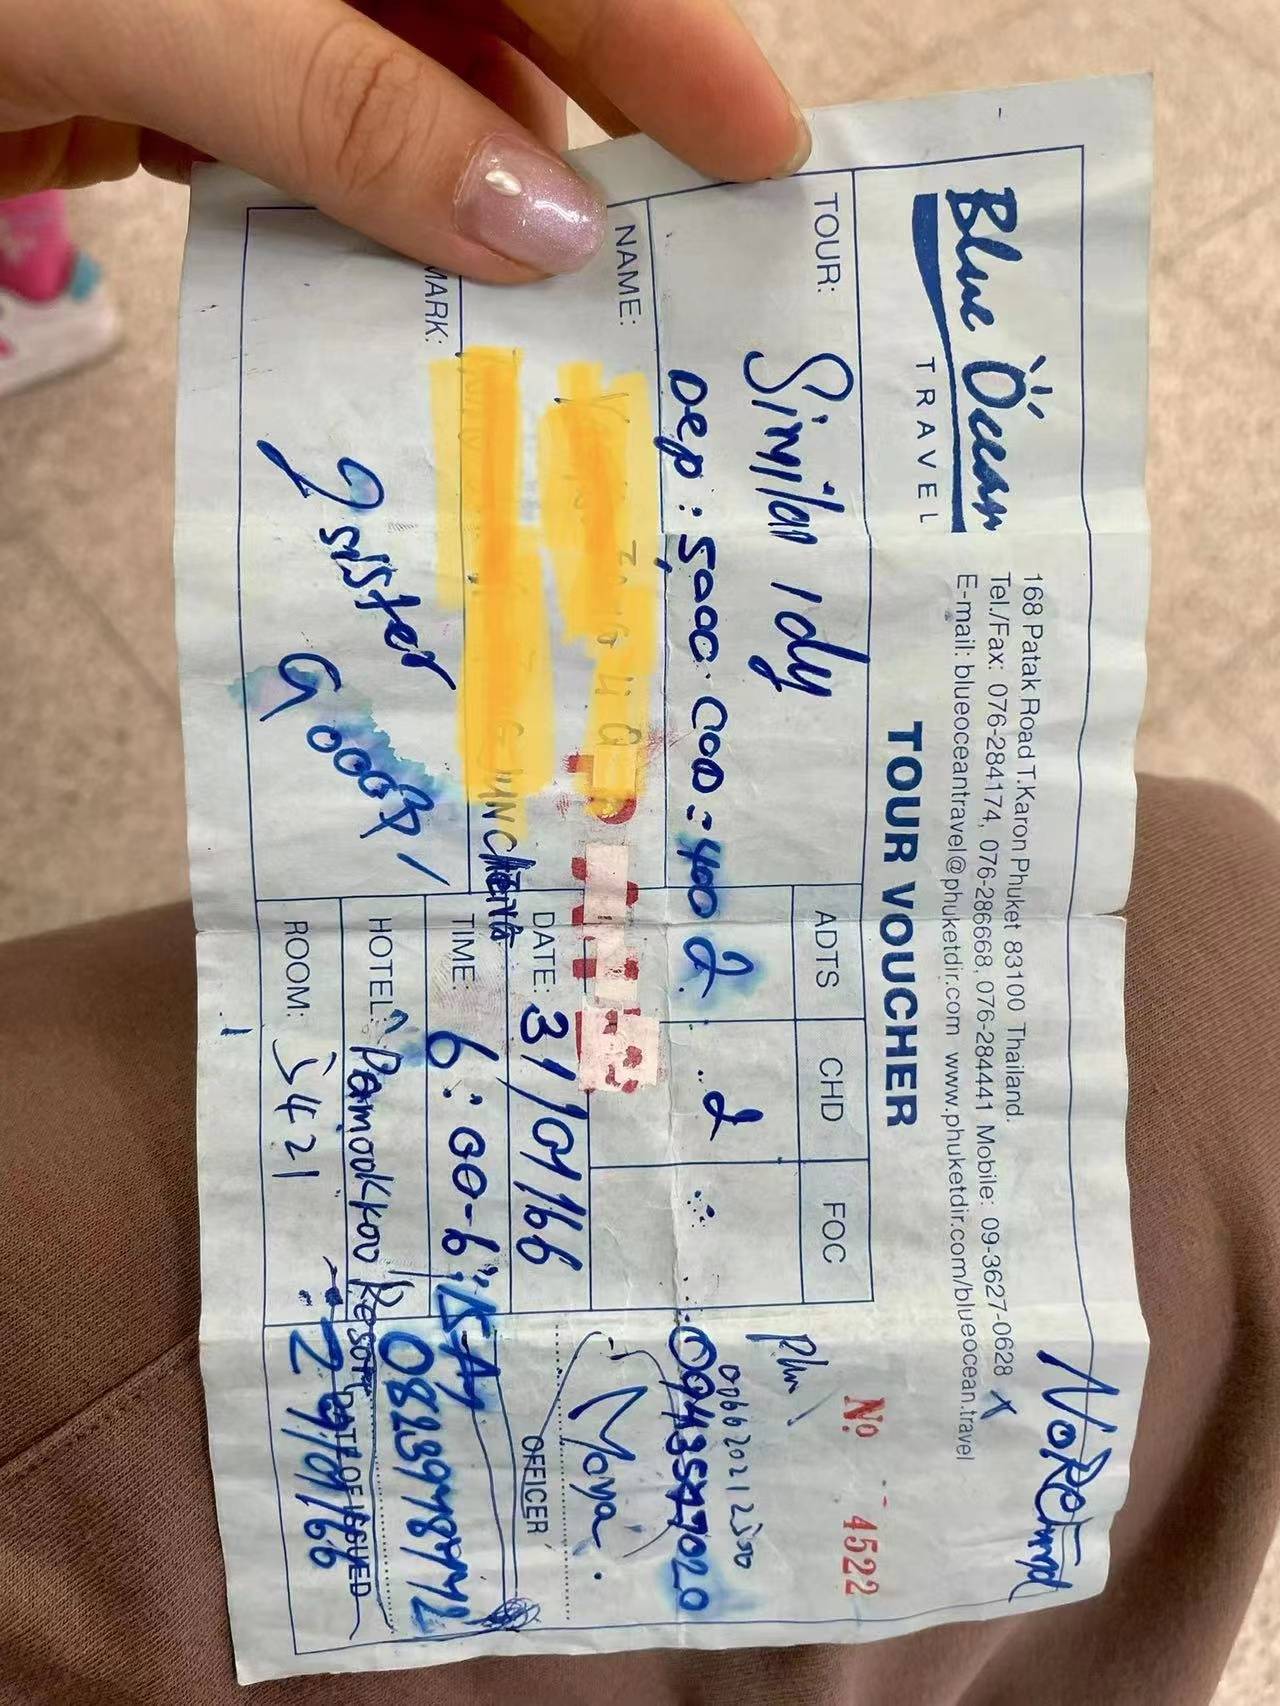 Blue Ocean
TRAVEL
168 Patak Road T.Karon Phuket 83100 Thailand.
Tel./Fax: 076-284174, 076-286668, 076-284441 Mobile: 09-3627-0628 X
E-mail: blueoceantravel@phuketdir.com www.phuketdir.com/blueocean.travel
No Refund
TOUR VOUCHER
Nº 4522
TOUR: Similan 1dy
ADTS
CHD
FOC
Dep: 5,000. COD = 400
2
2
0066 2021 2500
NAME:
Moya
OFFICER
DATE: 31/01/66
TIME: 6:00-6:15
MARK:
2 sister
HOTEL: Pamookkoo Resort
ROOM: 5421
DATE OF ISSUED
29/01/66